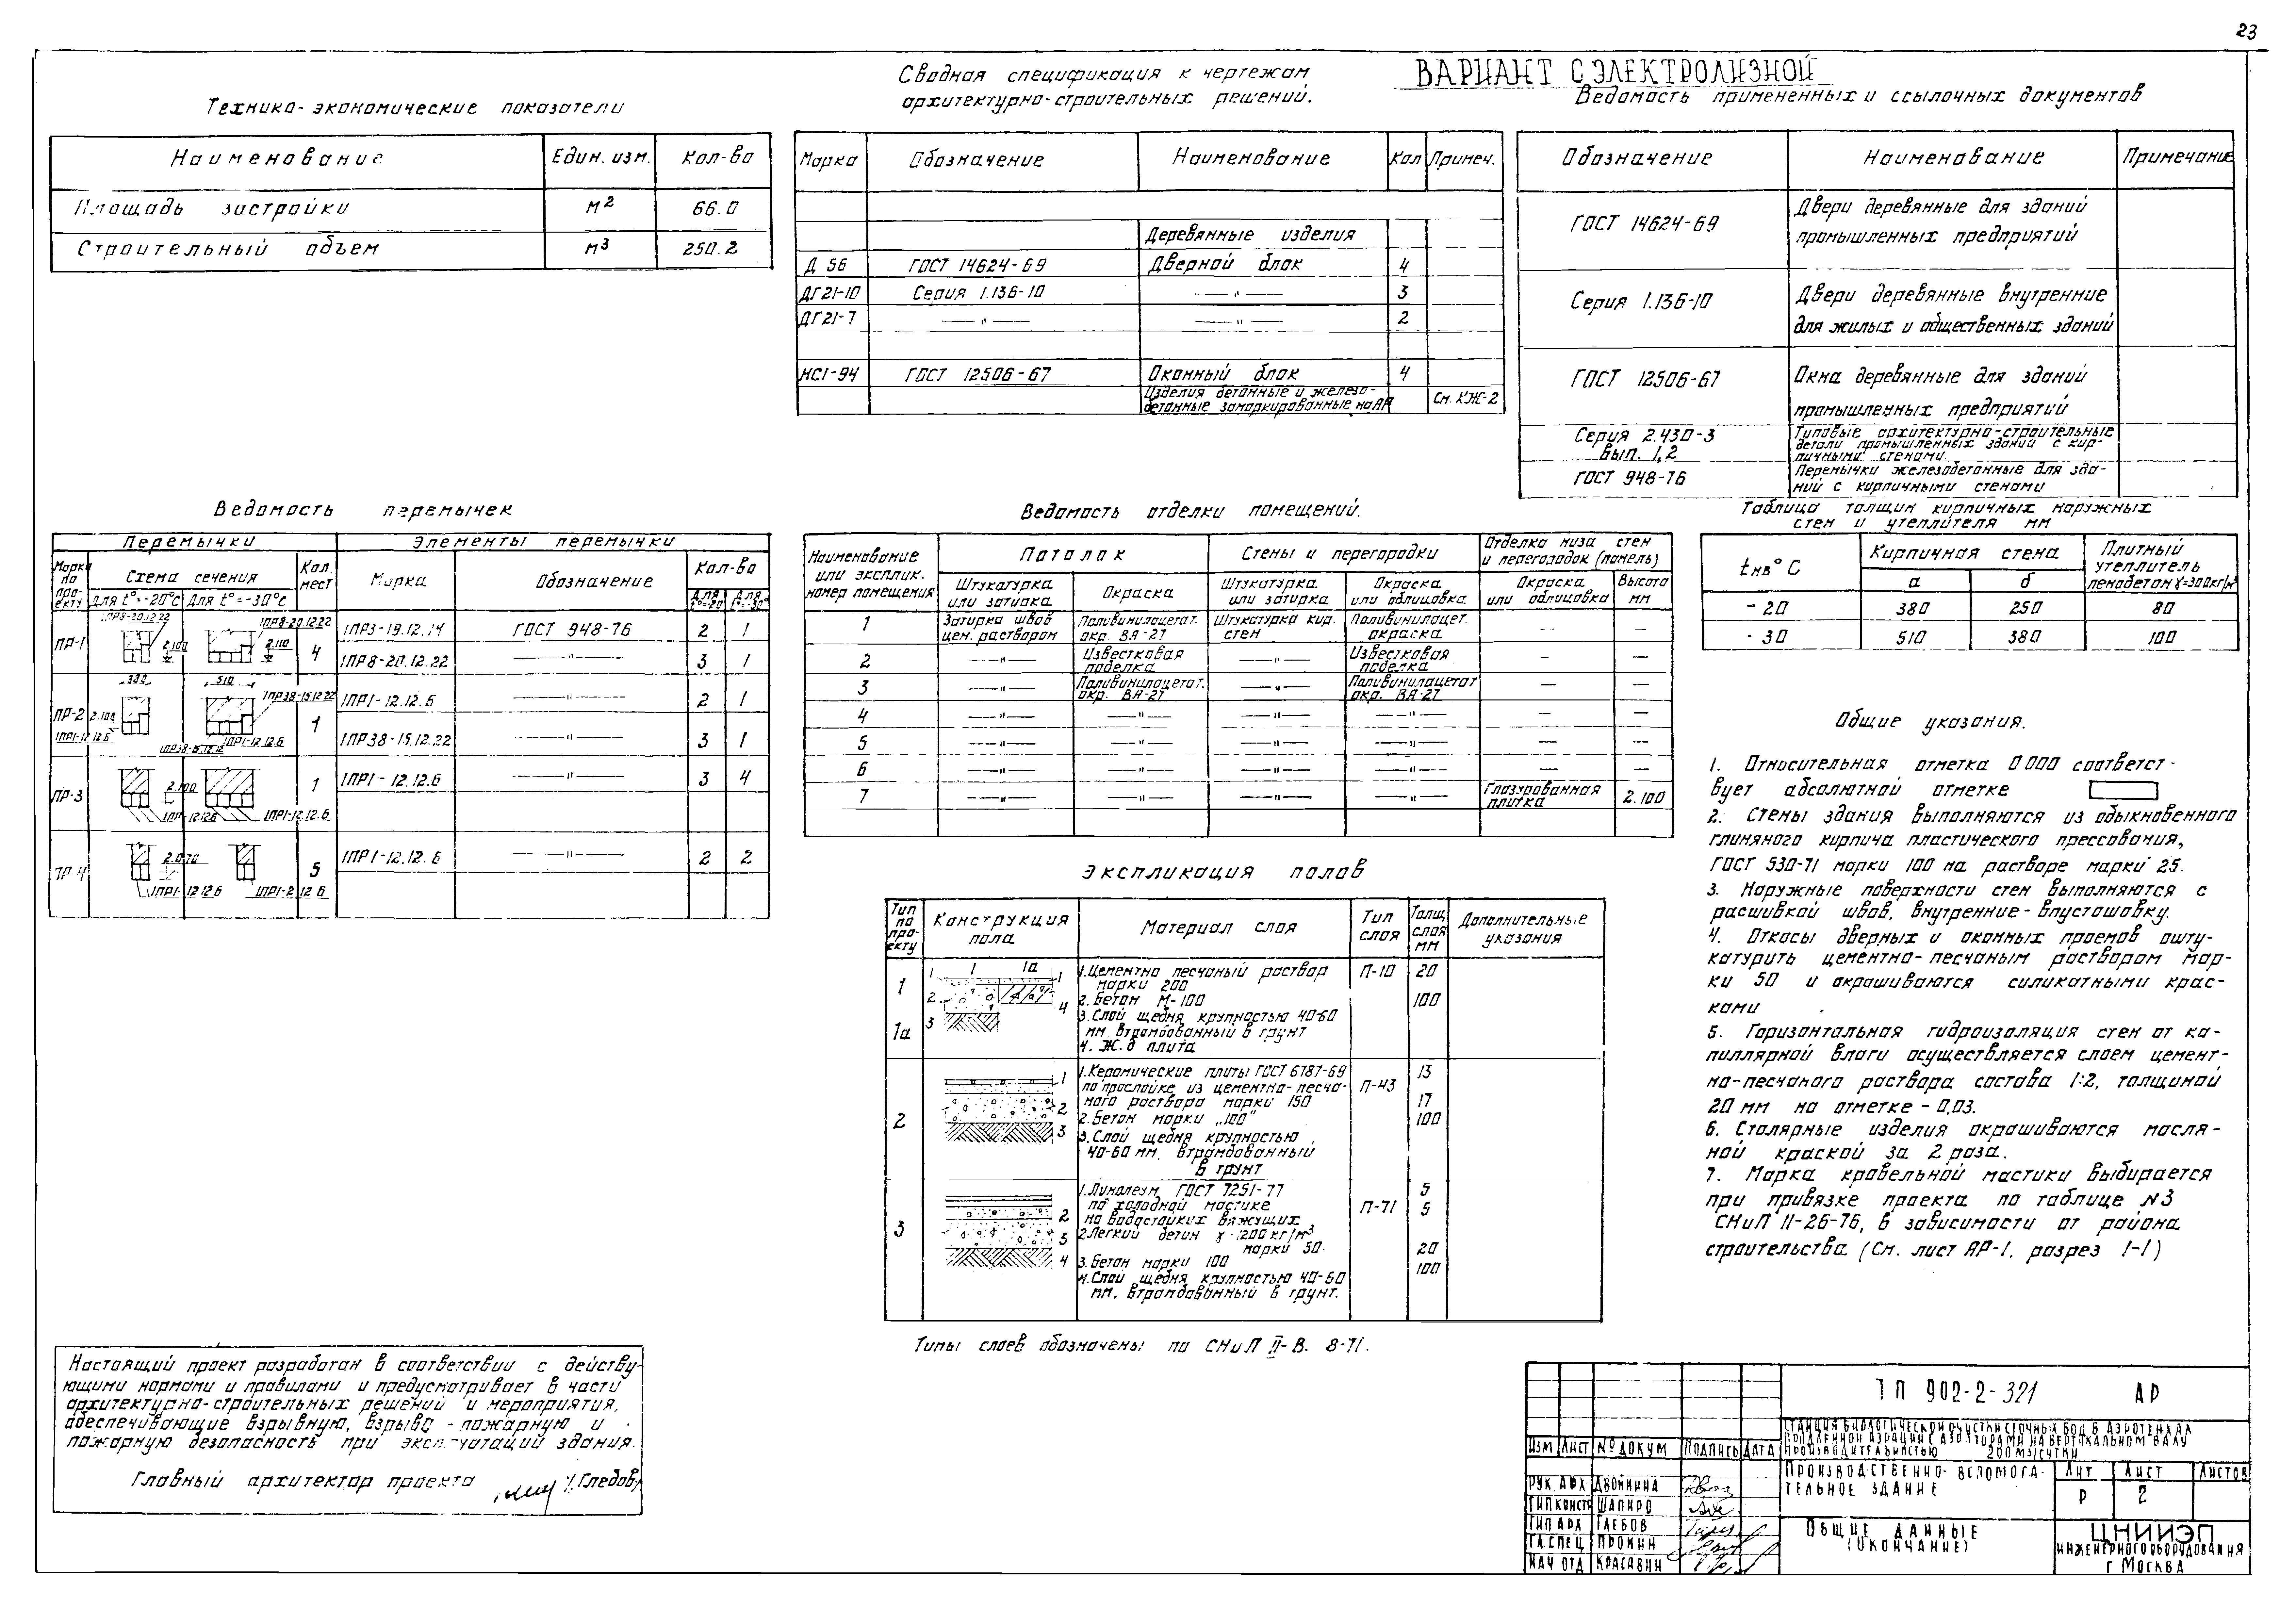 23
ВАРИАНТ С ЭЛЕКТРОЛИЗНОЙ
Технико-экономические показатели
Наименование Един. изм. Кол-во
Площадь застройки м2 66.0
Строительный объем м3 250.2
Сводная спецификация к чертежам
архитектурно-строительных решений.
Марка Обозначение Наименование Кол Примеч.
Деревянные изделия
Д 56 ГОСТ 14624-69 Дверной блок 4
ДГ21-10 Серия 1.136-10 —"— 3
ДГ21-7 —"— —"— 2
НС1-94 ГОСТ 12506-67 Оконный блок 4
Изделия бетонные и железо-
бетонные замаркированные на АР См. КЖ-2
Ведомость примененных и ссылочных документов
Обозначение Наименование Примечание
ГОСТ 14624-69 Двери деревянные для зданий
промышленных предприятий
Серия 1.136-10 Двери деревянные внутренние
для жилых и общественных зданий
ГОСТ 12506-67 Окна деревянные для зданий
промышленных предприятий
Серия 2.430-3 Типовые архитектурно-строительные
вып. 1,2 детали промышленных зданий с кир-
пичными стенами
ГОСТ 948-76 Перемычки железобетонные для зда-
ний с кирпичными стенами
Ведомость перемычек
Перемычки Элементы перемычки
Марка по про-екту Схема сечения Кол. мест Марка Обозначение Кол-во
Для t°=-20°с Для t°=-30°с Для t°=-20 Для t°=-30°
ПР-1 1ПР8-20.12.22 1ПР8-20.12.22 2.100 2.110 4 1ПР3-19.12.14 ГОСТ 948-76 2 1
1ПР8-20.12.22 —"— 3 1
380 510
ПР-2 2.100 1ПР38-15.12.22 1 1ПР1-12.12.6 —"— 2 1
1ПР1-12.12.6 1ПР38-15.12.12 1ПР1-12.12.6 1ПР38-15.12.22 —"— 3 1
ПР-3 2.100 1 1ПР1-12.12.6 —"— 3 4
1ПР1-12.12.6 1ПР1-12.12.6
ПР-4 2.070 5 1ПР1-12.12.6 —"— 2 2
1ПР1-12.12.6 1ПР1-2.12.6
Ведомость отделки помещений.
Наименование или эксплик. номер помещения Потолок Стены и перегородки Отделка низа стен и перегородок (панель)
Штукатурка или затирка Окраска Штукатурка или затирка Окраска или облицовка Окраска или облицовка Высота мм
1 Затирка швов цем. раствором Поливинилацетат. окр. ВА-27 Штукатурка кир. стен Поливинилацет. окраска — —
2 —"— Известковая побелка —"— Известковая побелка — —
3 —"— Поливинилацетат. окр. ВА-27 —"— Поливинилацетат окр. ВА-27 — —
4 —"— —"— —"— —"— — —
5 —"— —"— —"— —"— — —
6 —"— —"— —"— —"— — —
7 —"— —"— —"— —"— Глазурованная плитка 2.100
Таблица толщин кирпичных наружных
стен и утеплителя мм
tнв°С Кирпичная стена Плитный утеплитель пенобетон γ=300кг/м³
а б
-20 380 250 80
-30 510 380 100
Экспликация полов
Тип по про-екту Конструкция пола Материал слоя Тип слоя Толщ. слоя мм Дополнительные указания
1 1 1 1а 1 1.Цементно песчаный раствор П-10 20
марки 200
2 4 2.Бетон М-100 100
3 3.Слой щебня крупностью 40-60
1а мм. втрамбованный в грунт
4. Ж.б плита
1 1.Керамические плиты ГОСТ 6787-69 13
по прослойке из цементно-песча- П-43
2 ного раствора марки 150 17
2 2.Бетон марки „100" 100
3 3.Слой щебня крупностью
40-60 мм. втрамбованный
в грунт
1.Линолеум ГОСТ 7251-77 5
по холодной мастике П-71 5
3 2 на водостойких вяжущих
3 2Легкий бетон γ-1200кг/м³
марки 50. 20
4 3.Бетон марки 100 100
4.Слой щебня крупностью 40-60
мм. втрамбованный в грунт.
Типы слоев обозначены по СНиП II-В. 8-71.
Общие указания.
1. Относительная отметка 0.000 соответст-
вует абсолютной отметке
2. Стены здания выполняются из обыкновенного
глиняного кирпича пластического прессования,
ГОСТ 530-71 марки 100 на растворе марки 25.
3. Наружные поверхности стен выполняются с
расшивкой швов, внутренние-впустошовку.
4. Откосы дверных и оконных проемов ошту-
катурить цементно-песчаным раствором мар-
ки 50 и окрашиваются силикатными крас-
ками
5. Горизонтальная гидроизоляция стен от ка-
пиллярной влаги осуществляется слоем цемент-
но-песчаного раствора состава 1:2, толщиной
20 мм на отметке -0,03.
6. Столярные изделия окрашиваются масля-
ной краской за 2 раза.
7. Марка кровельной мастики выбирается
при привязке проекта по таблице №3
СНиП II-26-76, в зависимости от района
строительства (См. лист АР-1, разрез 1-1)
Настоящий проект разработан в соответствии с действу-
ющими нормами и правилами и предусматривает в части
архитектурно-строительных решений и мероприятия,
обеспечивающие взрывную, взрыво-пожарную и
пожарную безопасность при эксплуатаций здания.
Главный архитектор проекта
ТП 902-2-321 АР
СТАНЦИЯ БИОЛОГИЧЕСКОЙ ОЧИСТКИ СТОЧНЫХ ВОД В АЭРОТЕНКАХ
ПРОДЛЕННОЙ АЭРАЦИИ С АЭРАТОРАМИ НА ВЕРТИКАЛЬНОМ ВАЛУ
ПРОИЗВОДИТЕЛЬНОСТЬЮ 200 М3/СУТКИ
ИЗМ ЛИСТ № ДОКУМ ПОДПИСЬ ДАТА
ПРОИЗВОДСТВЕННО-ВСПОМОГА-
ТЕЛЬНОЕ ЗДАНИЕ
ЛИТ ЛИСТ ЛИСТОВ
Р 2
РУК АРХ ДВОЙНИНА
ГИП КОНСТР ШАПИРО
ГИП АРХ ГЛЕБОВ
ГЛ СПЕЦ ПРОНИН
НАЧ ОТД КРАСАВИН
ОБЩИЕ ДАННЫЕ
(ОКОНЧАНИЕ)
ЦНИИЭП
ИНЖЕНЕРНОГО ОБОРУДОВАНИЯ
Г МОСКВА